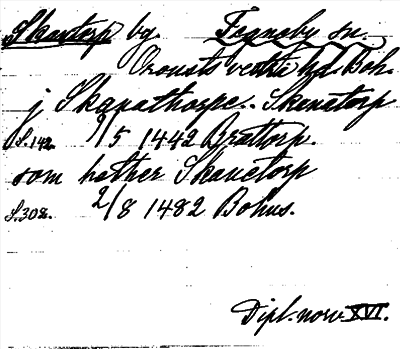 Skantorp by. Tegneby sn.
Orousts vestra hd. Boh.
j Skanathorpe.. Skenetorp
S. 142. 9/5 1442 Brattorp.
som hether Skanetorp
S. 302. 2/8 1482 Bohus.
Dipl. norv. XVI.